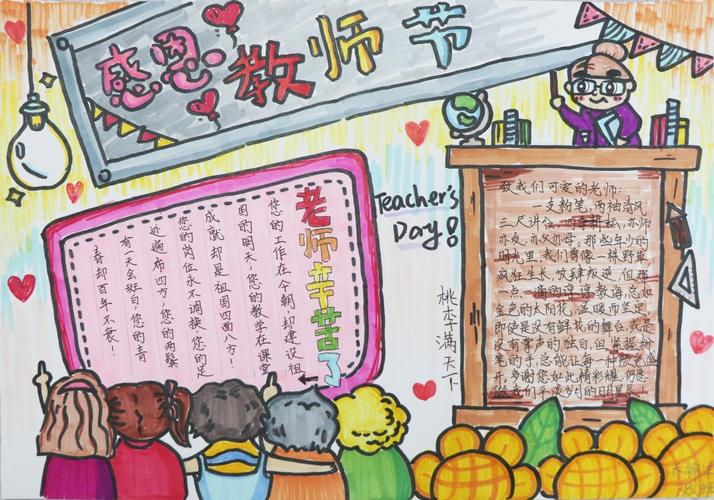 感恩教师节
老师辛苦了
您的工作在今朝,却建设祖
国的明天;您的教学在课堂
成就却是祖国四面八方!
您的岗位永不调换,您的足
迹遍布四方;您的两鬓
有一天会斑白,您的青
春却百年不衰!
Teacher's
Day!
桃李满天下
致我们可爱的老师:
一支粉笔,两袖清风
三尺讲台,四季耕耘,亦师
亦友,亦父亦母,那些年少的
时光里,我们曾像一株野草
疯狂生长,放肆 但那
一点 滴的谆谆教诲,宛如
金色的太阳花,温暖而坚定
即使是没有鲜花的舞台,或是
没有掌声的独白,但紧握粉
笔的手,总能让每一种颜色盛
开,多谢您如此精彩耀眼,仍愿
做我们平淡岁月的日月星辰